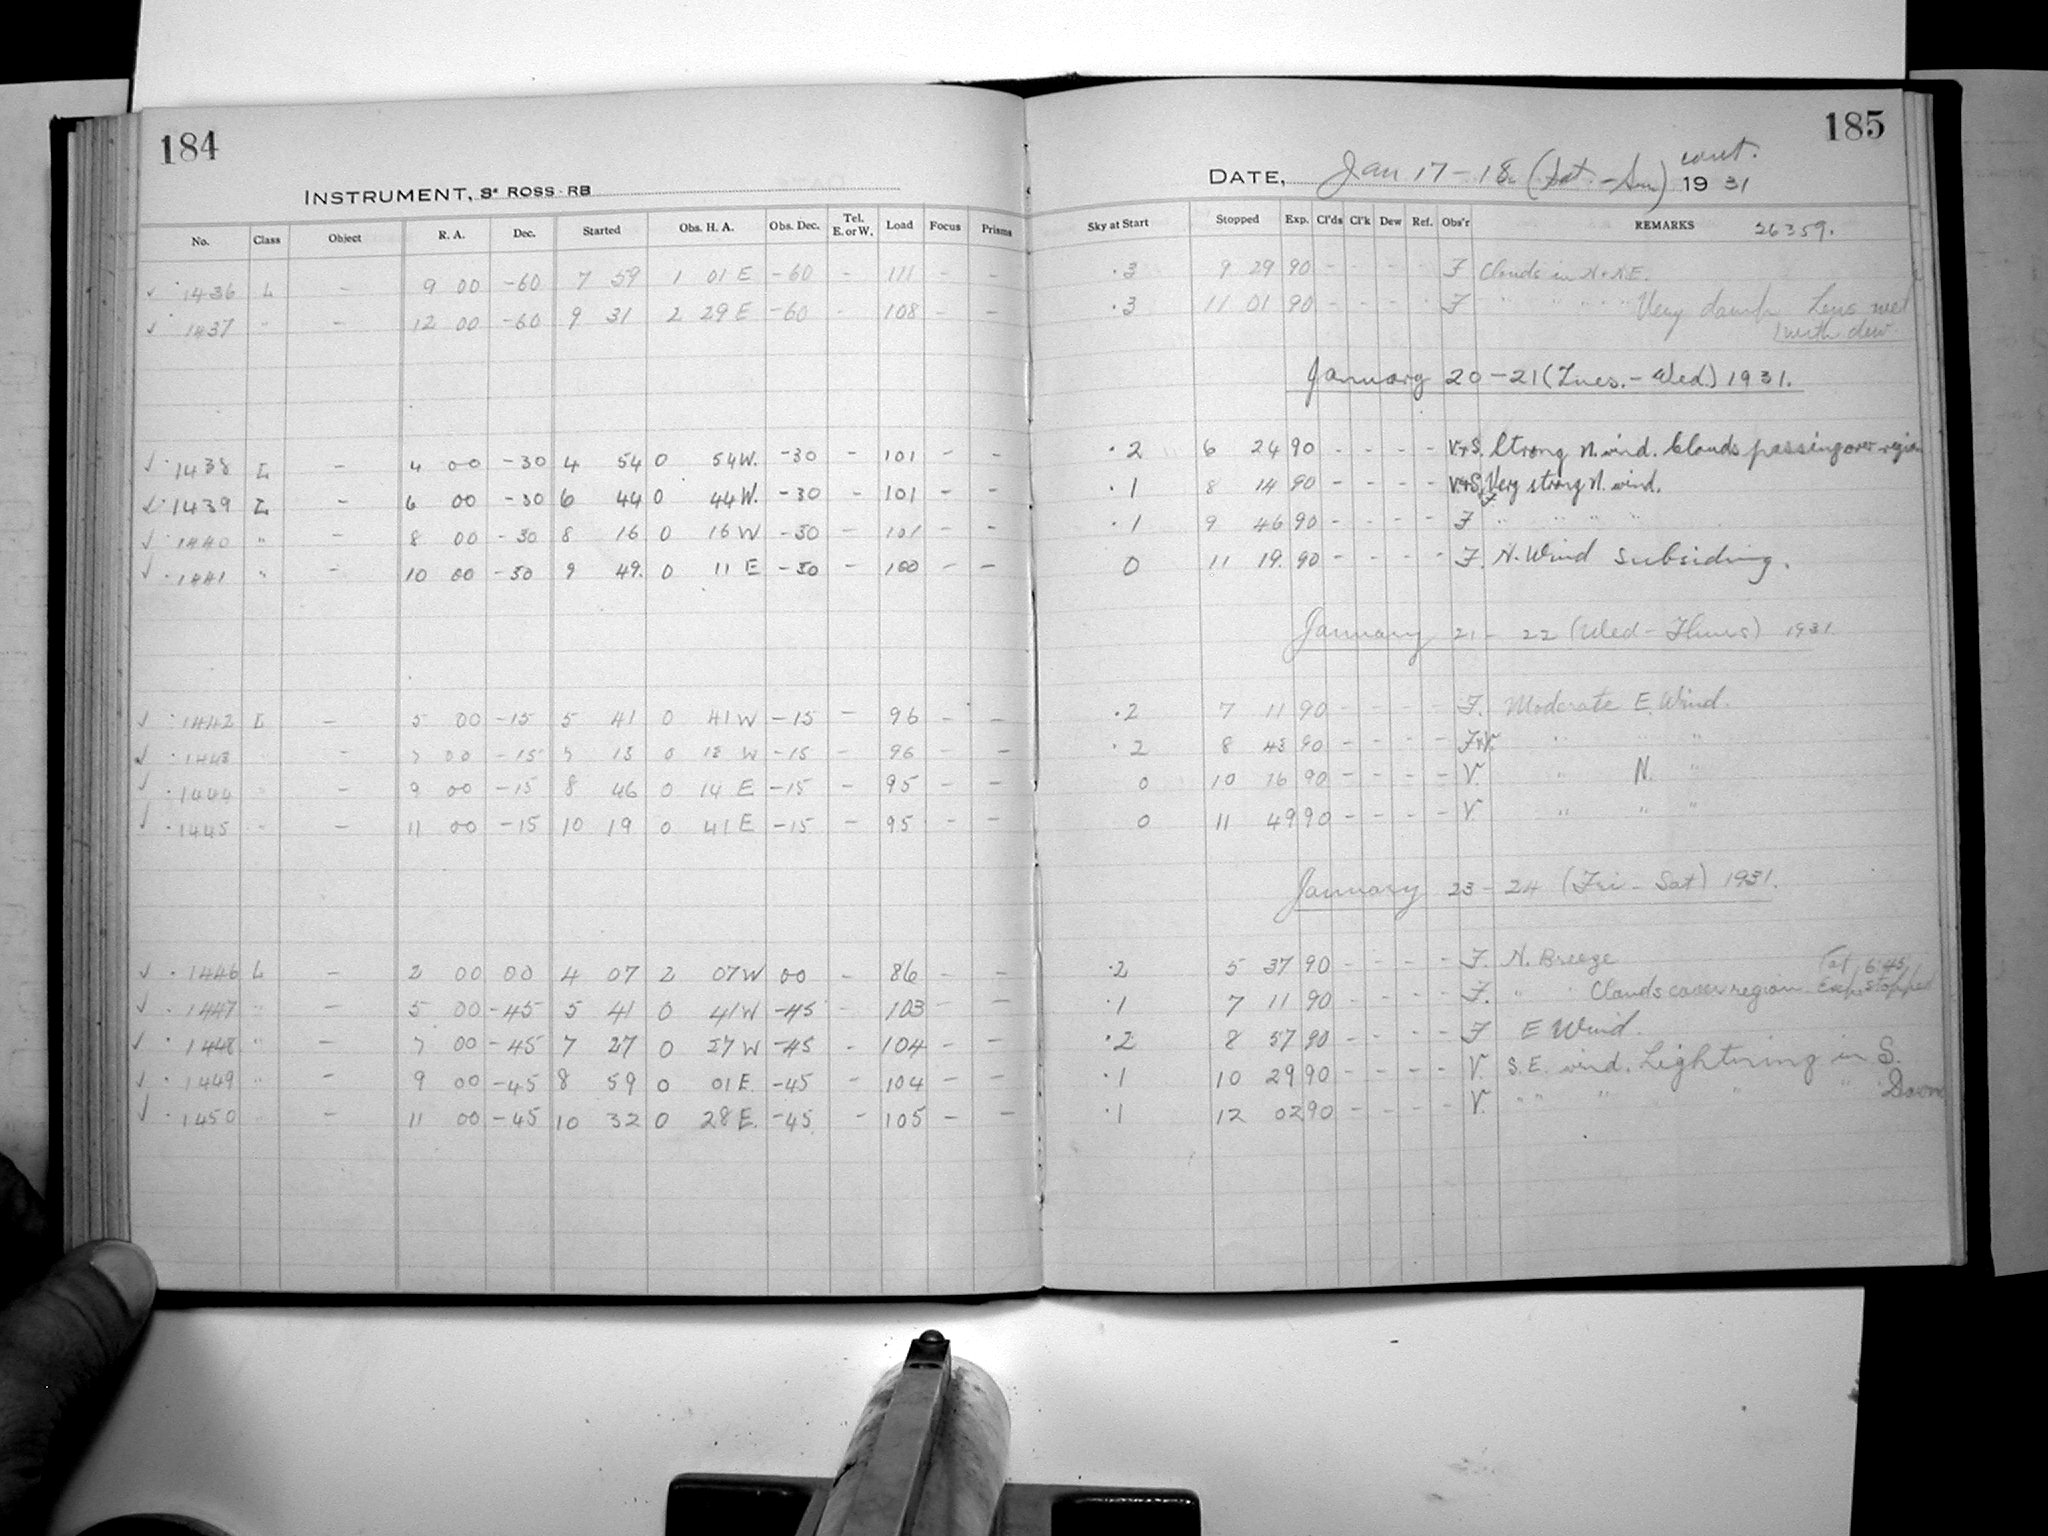 184
INSTRUMENT, 3" ROSS-RB
No. Class Object R. A. Dec. Started Obs. H. A. Obs. Dec. Tel. E. or W. Load Focus Prisms
√ · 1436 L – 9 00 -60 7 59 1 01 E -60 - 111 - -
√ · 1437 " – 12 00 -60 9 31 2 29 E -60 - 108 - -
√ · 1438 L – 4 00 -30 4 54 0 54 W. -30 - 101 - -
√ · 1439 L – 6 00 -30 6 44 0 44 W. -30 - 101 - -
√ · 1440 " – 8 00 -30 8 16 0 16 W -30 - 101 - -
√ · 1441 " – 10 00 -30 9 49. 0 11 E -30 - 100 - -
√ · 1442 L – 5 00 -15 5 41 0 41 W -15 - 96 - -
√ · 1443 " – 7 00 -15 7 13 0 13 W -15 - 96 - -
√ · 1444 " – 9 00 -15 8 46 0 14 E -15 - 95 - -
√ · 1445 " – 11 00 -15 10 19 0 41 E -15 - 95 - -
√ · 1446 L – 2 00 00 4 07 2 07 W 00 - 86 - -
√ · 1447 " – 5 00 -45 5 41 0 41 W -45 - 103 - -
√ · 1448 " – 7 00 -45 7 27 0 27 W -45 - 104 - -
√ · 1449 " – 9 00 -45 8 59 0 01 E. -45 - 104 - -
√ · 1450 " – 11 00 -45 10 32 0 28 E. -45 - 105 - -
185
DATE, Jan 17-18 (Sat.-Sun) cont. 1931
Sky at Start Stopped Exp. Cl'ds Cl'k Dew Ref. Obs'r REMARKS 26359.
.3 9 29 90 - - - - F Clouds in N + N.E.
.3 11 01 90 - - - - F " " " " " Very damp Lens wet
with dew.
January 20-21 (Tues.-Wed.) 1931.
.2 6 24 90 - - - - V.+S. Strong N. wind. Clouds passing over region
.1 8 14 90 - - - - V.+S. F Very strong N. wind.
.1 9 46 90 - - - - F " " " "
0 11 19. 90 - - - - F. N. Wind subsiding.
January 21-22 (Wed-Thurs) 1931.
.2 7 11 90 - - - - F. Moderate E. Wind.
.2 8 43 90 - - - - F+V. " " "
0 10 16 90 - - - - V. " N. "
0 11 49 90 - - - - V. " " "
January 23-24 (Fri-Sat) 1931.
.2 5 37 90 - - - - F. N. Breeze
.1 7 11 90 - - - - F. " " Clouds cover region at 6:45 Exp. stopped
.2 8 57 90 - - - - F E Wind.
.1 10 29 90 - - - - V. S.E. wind. Lightning in S.
.1 12 02 90 - - - - V. " " " " " "